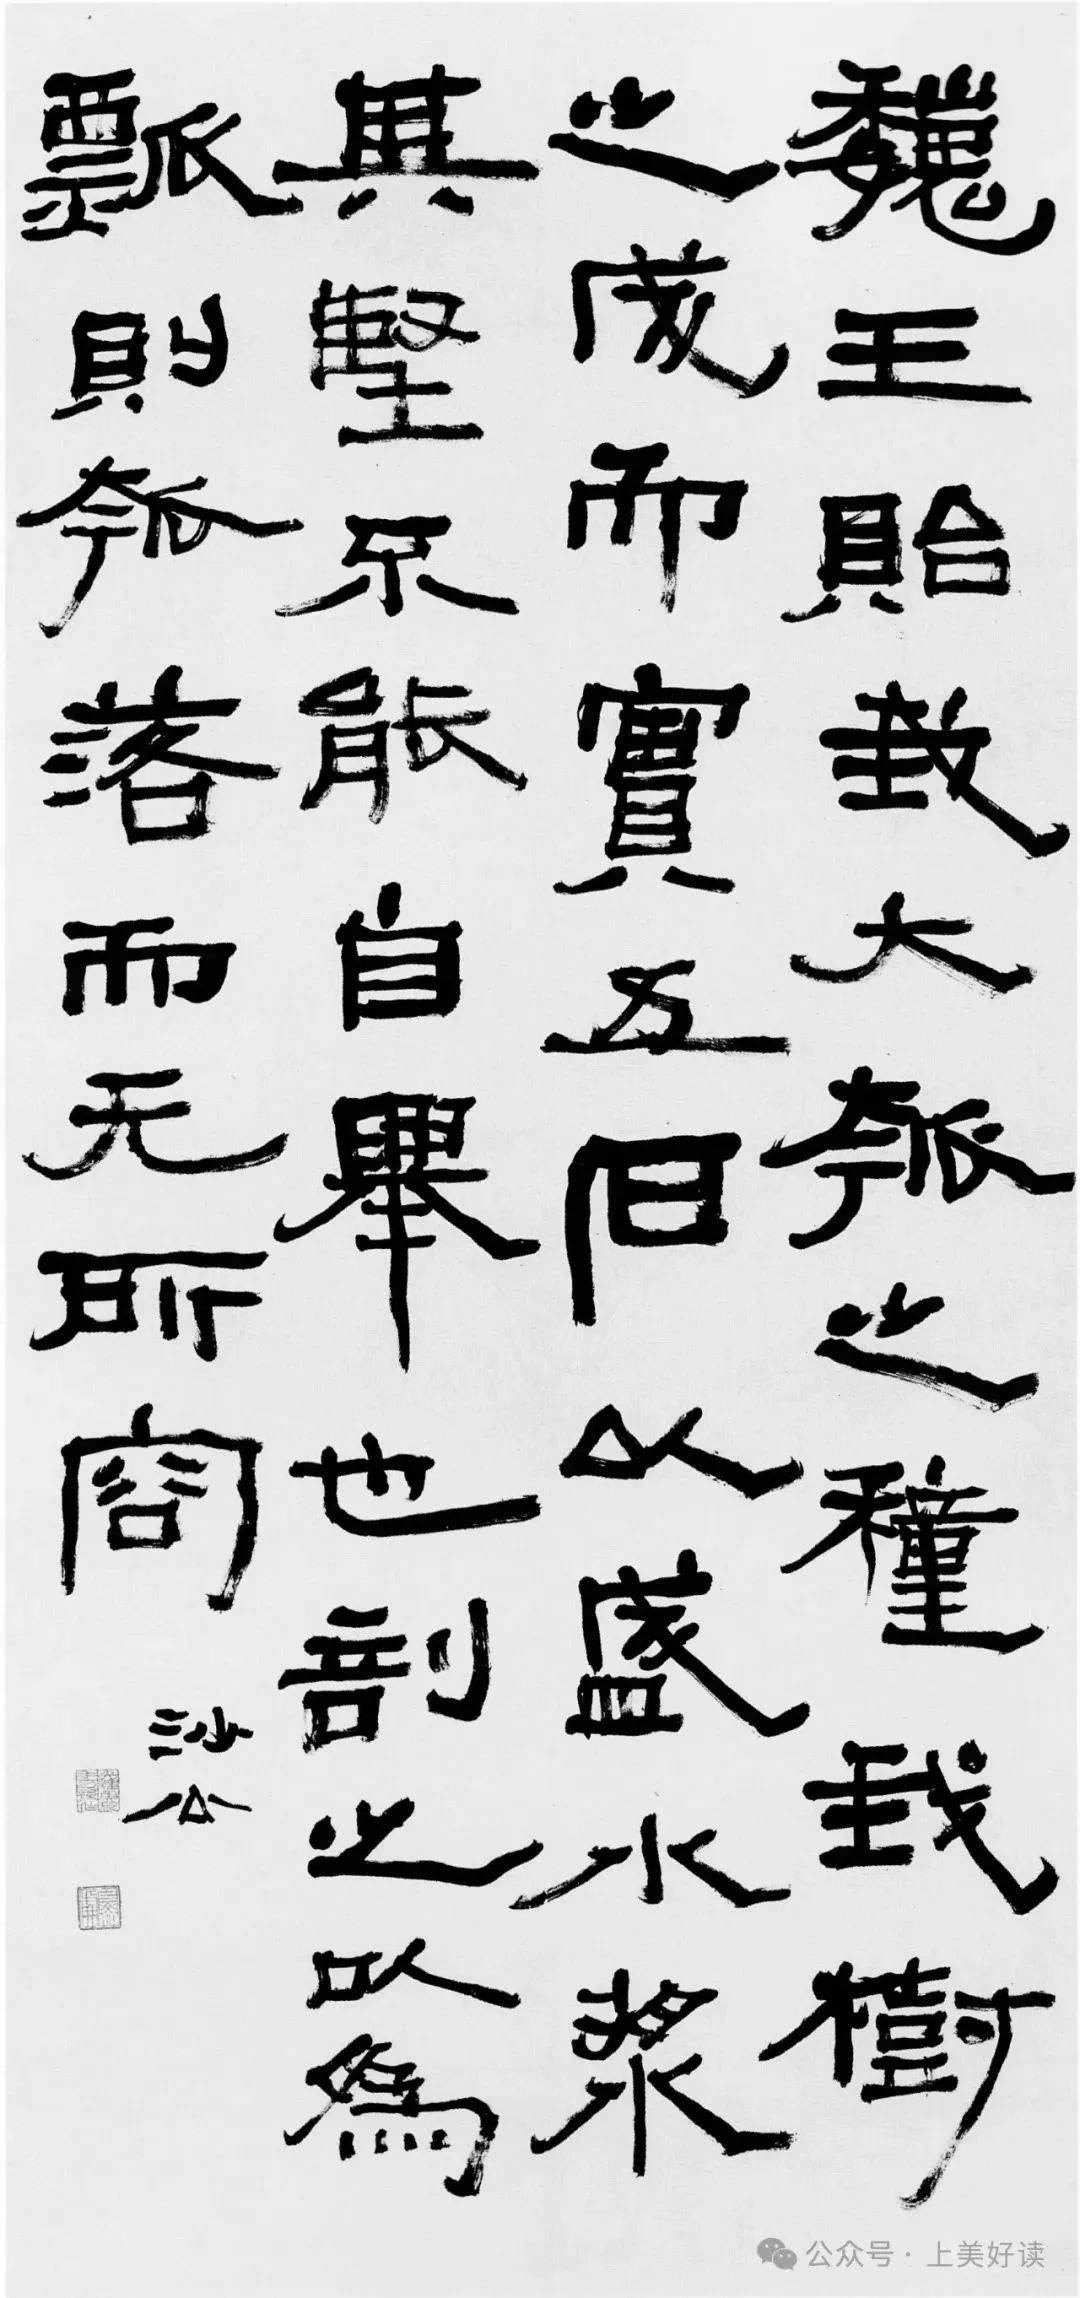 魏王貽我大瓠之種我樹
之成而實五石以盛水漿
其堅不能自舉也剖之以為
瓢則瓠落而无所容
沙公
公众号 · 上美好读